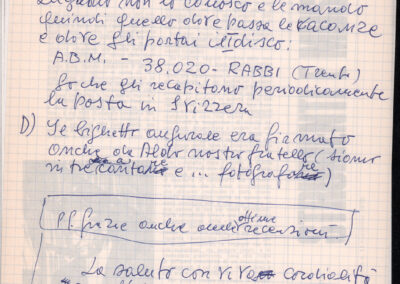 non lo conosco e le mando
quindi quello dove passa le vacanze
e dove gli portai il disco:
A.B.M. - 38.020 - RABBI (Trento)
So che gli recapitono periodicamente
la posta in Svizzera
D) Il biglietto augurale era firmato
anche da Aldo nostro fratello (siamo
in tre e ... fotografo
P.S. grazie anche ottime recensioni
La saluto con viva cordialità